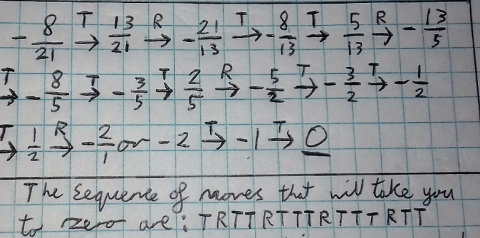 -8/21 T→ 13/21 R→ -21/13 T→ -8/13 T→ 5/13 R→ -13/5
T→ -8/5 T→ -3/5 T→ 2/5 R→ -5/2 T→ -3/2 T→ -1/2
T→ 1/2 R→ -2/1 or -2 T→ -1 T→ 0
The sequence of moves that will take you
to zero are: TRTTRTTTRTTTRTT